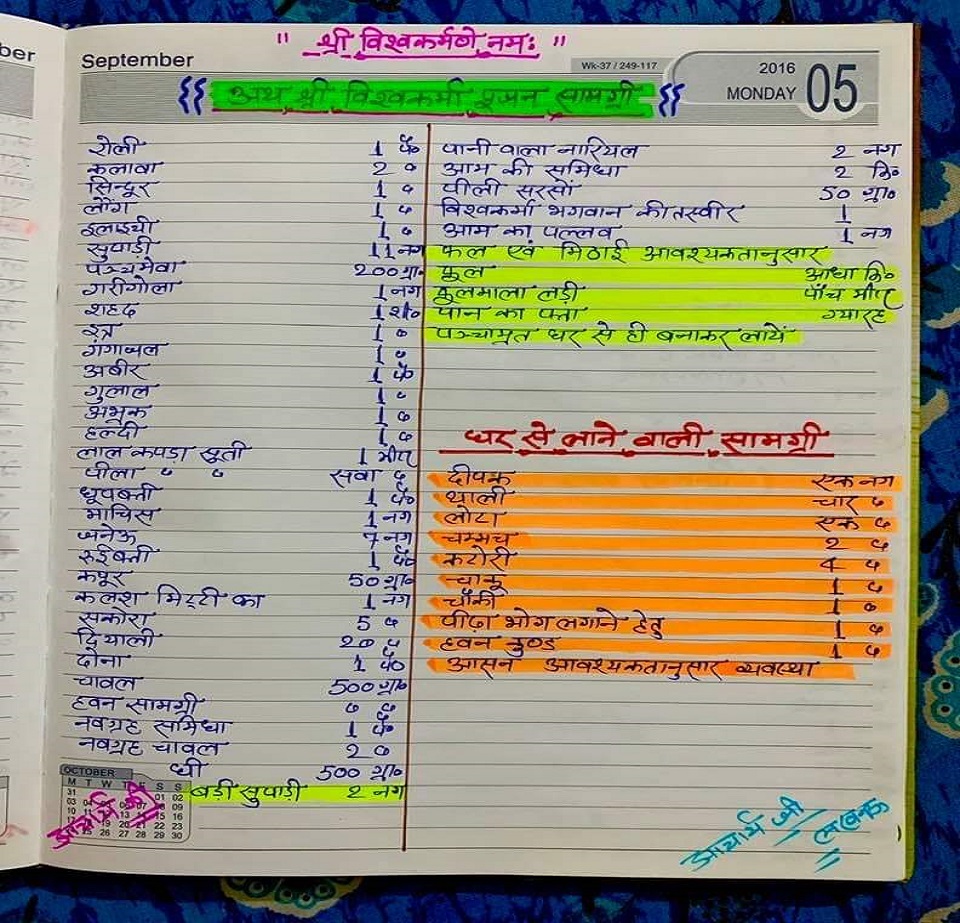 ber
September
" श्री विश्वकर्मणे नमः "
Wk-37 / 249-117
2016
MONDAY
05
{{ अथ श्री विश्वकर्मा पूजन सामग्री }}
रोली 1 पै०
कलावा 2 "
सिन्दूर 1 "
लौंग 1 "
इलाइची 1 "
सुपाड़ी 11 नग
पञ्चमेवा 200 ग्रा०
गरीगोला 1 नग
शहद 1 शी०
इत्र 1 "
गंगाजल 1 "
अबीर 1 पै०
गुलाल 1 "
अभ्रक 1 "
हल्दी 1 "
लाल कपड़ा सूती 1 मीटर
पीला " " सवा "
धूपबत्ती 1 पै०
माचिस 1 नग
जनेऊ 7 नग
रुईबत्ती 1 पै०
कपूर 50 ग्रा०
कलश मिट्टी का 1 नग
सकोरा 5 "
दियाली 20 "
दोना 1 पै०
चावल 500 ग्रा०
हवन सामग्री " "
नवग्रह समिधा 1 पै०
नवग्रह चावल 2 "
घी 500 ग्रा०
बड़ी सुपाड़ी 2 नग
पानी वाला नारियल 2 नग
आम की समिधा 2 कि०
पीली सरसों 50 ग्रा०
विश्वकर्मा भगवान की तस्वीर 1
आम का पल्लव 1 नग
फल एवं मिठाई आवश्यकतानुसार
फूल आधा कि०
फूलमाला लड़ी पाँच मीटर
पान का पत्ता ग्यारह
पञ्चामृत घर से ही बनाकर लायें
घर से लाने वाली सामग्री
दीपक एक नग
थाली चार "
लोटा एक "
चम्मच 2 "
कटोरी 4 "
चाकू 1 "
चौकी 1 "
पीढ़ा भोग लगाने हेतु 1 "
हवन कुण्ड 1 "
आसन आवश्यकतानुसार व्यवस्था
OCTOBER
M T W T F S S
31 01 02
03 04 05 06 07 08 09
आचार्य जी
आचार्य जी
लखनऊ